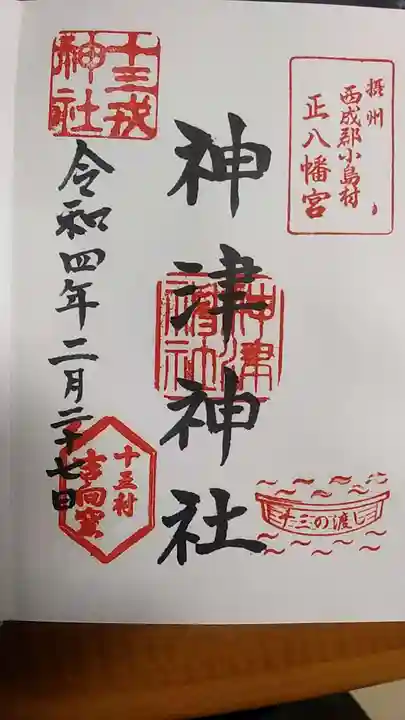 摂州
西成郡小島村
正八幡宮
神津神社
神津神社
十三の渡し
十三戎
神社
令和四年二月二十七日
十三村
吉向窯